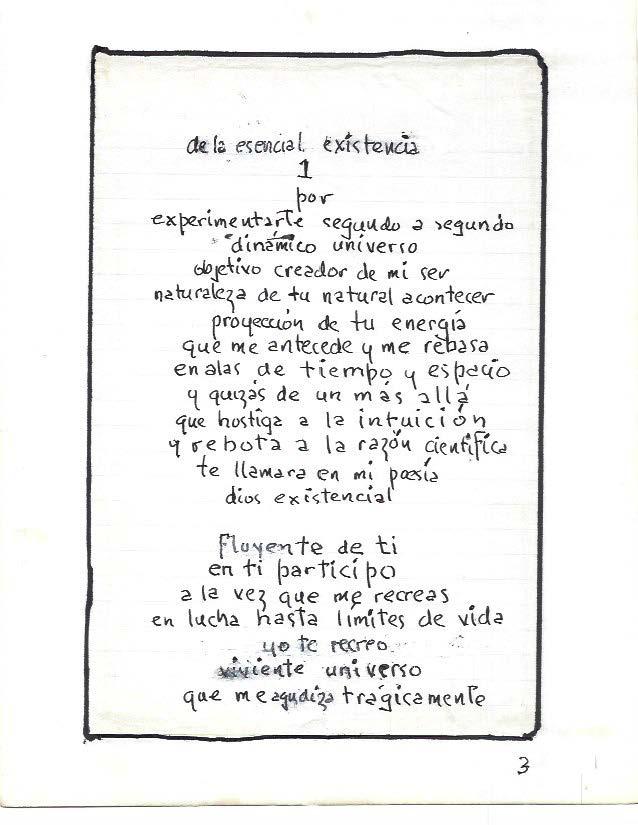 de la esencial existencia
1
por
experimentarte segundo a segundo
dinámico universo
objetivo creador de mi ser
naturaleza de tu natural acontecer
proyección de tu energía
que me antecede y me rebasa
en alas de tiempo y espacio
y quizás de un más allá
que hostiga a la intuición
y rebota a la razón científica
te llamara en mi poesía
dios existencial
Fluyente de ti
en ti participo
a la vez que me recreas
en lucha hasta límites de vida
yo te recreo
viviente universo
que me agudiza trágicamente
3